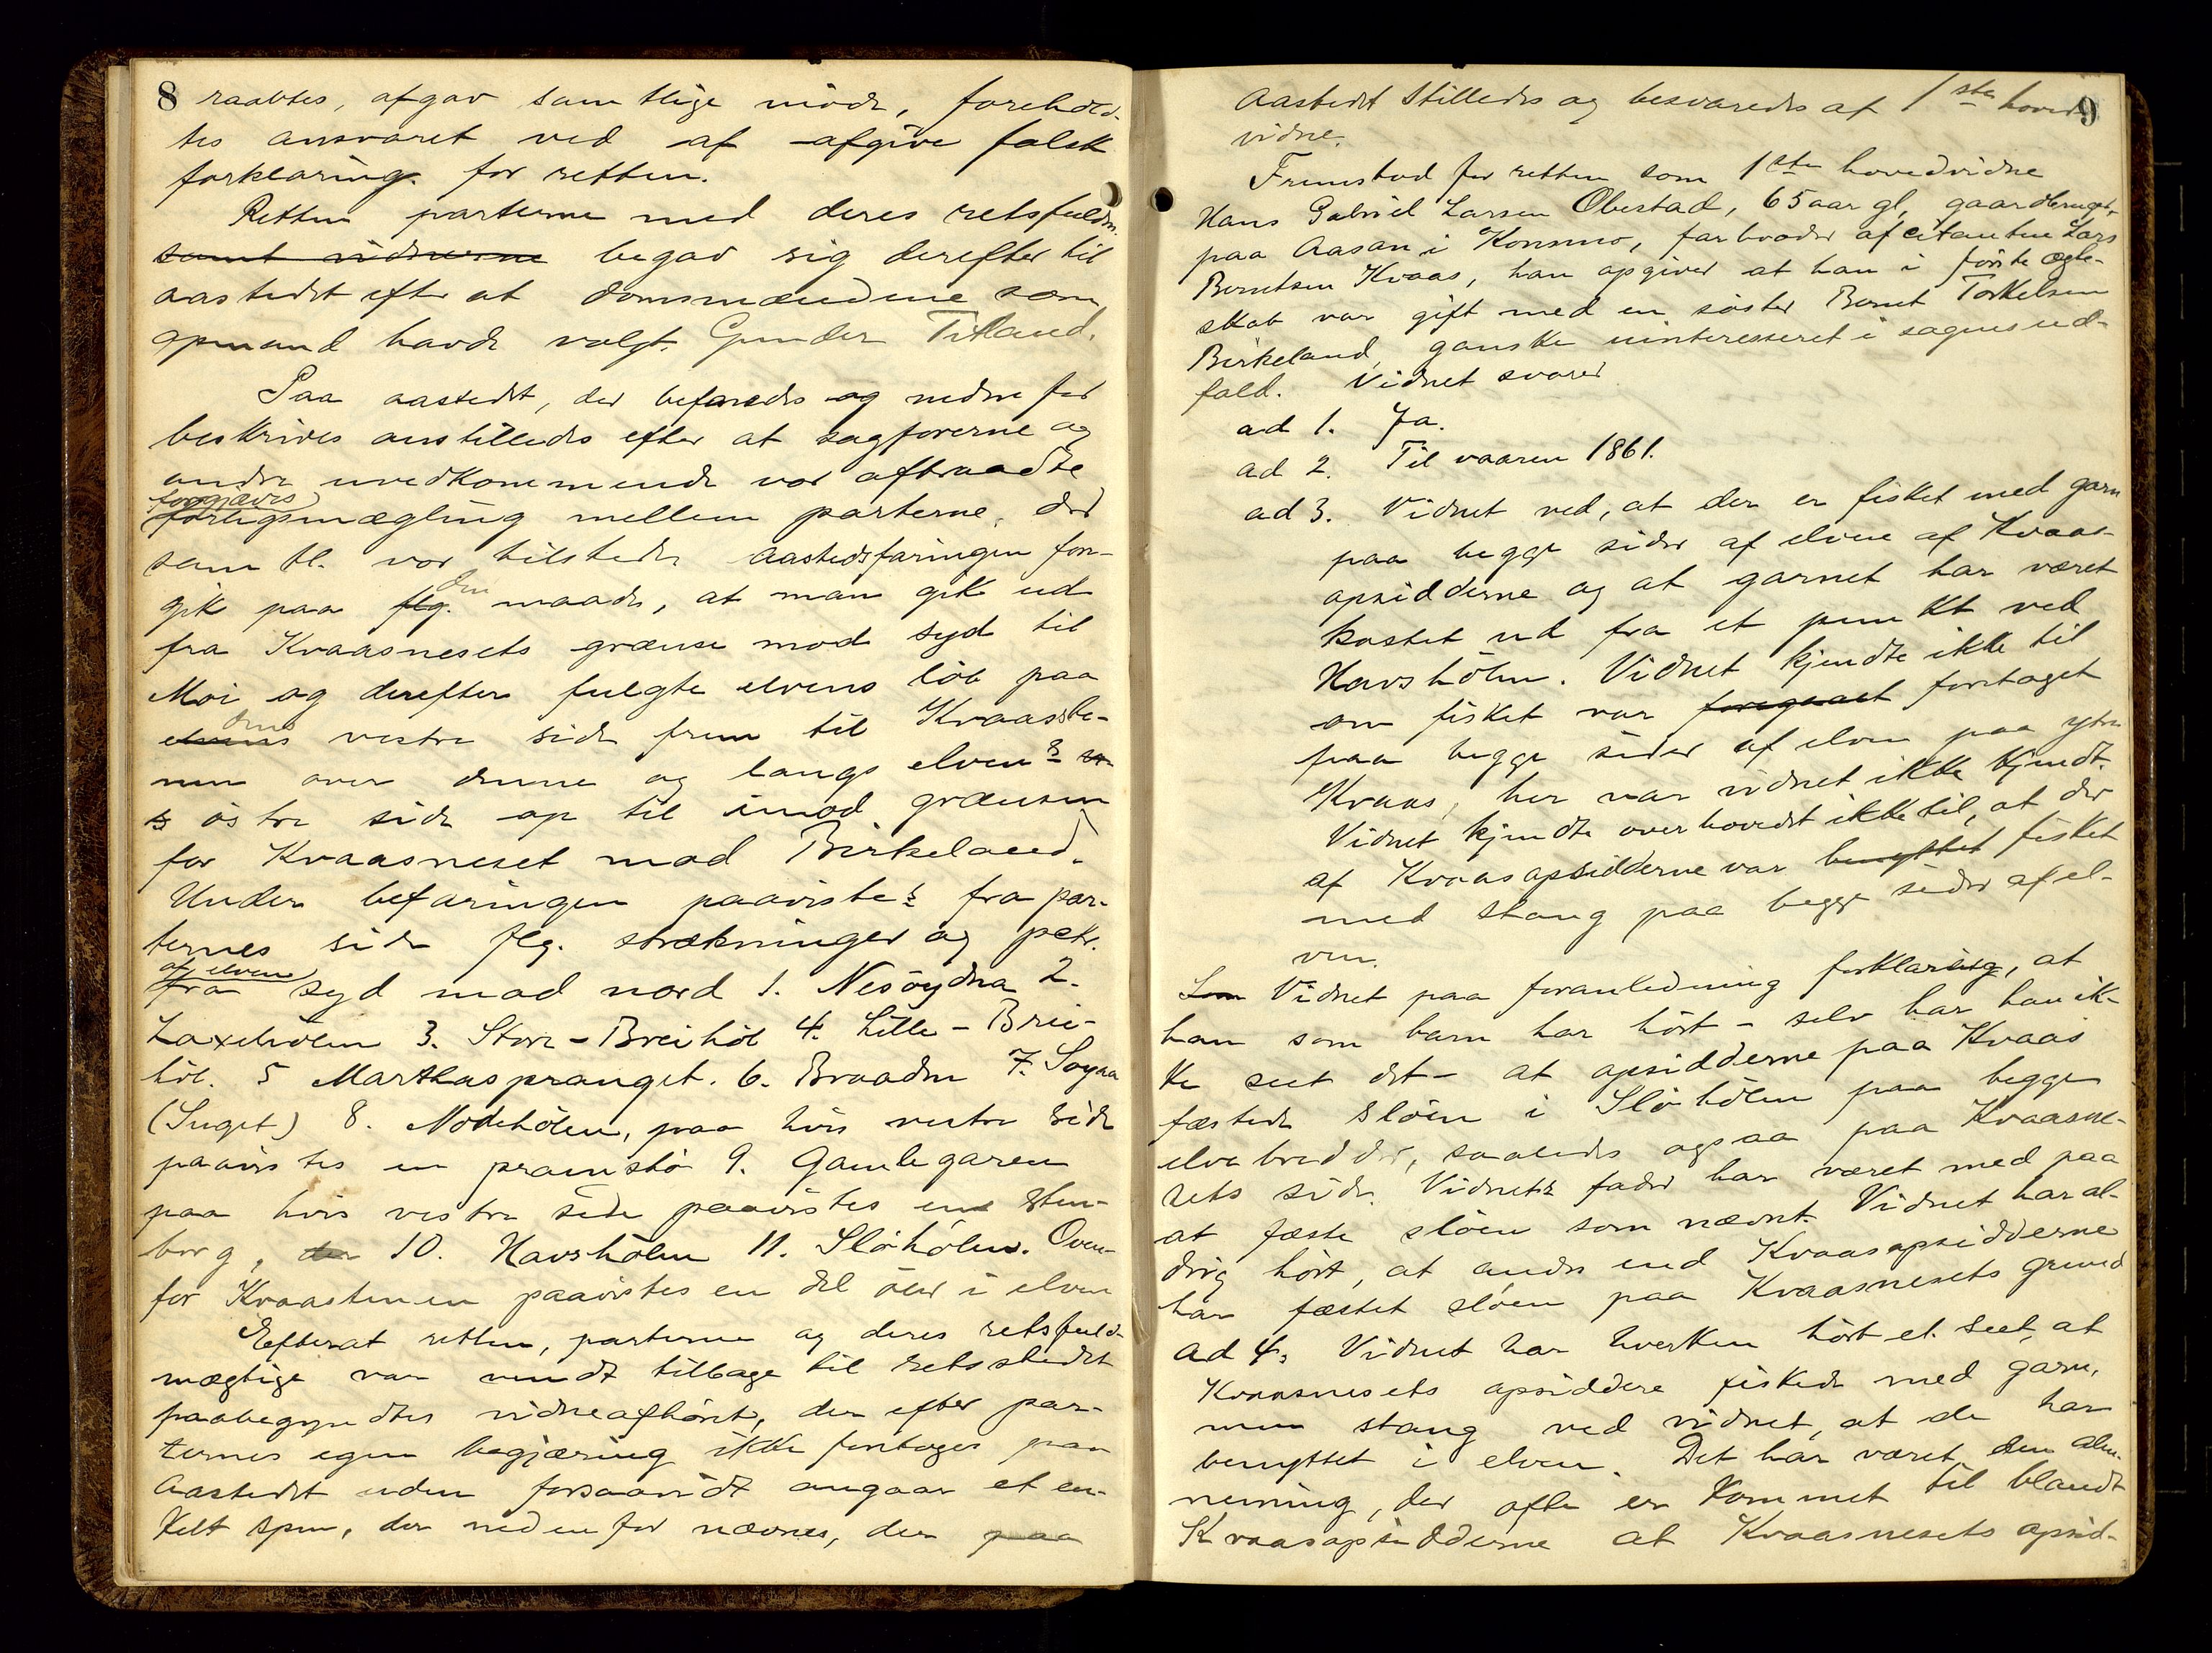 8 raabtes, afgav samtlige møde, forehold-
tes ansvaret ved af afgive falsk
forklaring for retten.
Retten parterne med deres retsfuldm.
samt vidnerne begav sig derefter til
aastedet efter at domsmændene som
opmand havde valgt Gunder Titland.
Paa aastedet, der befaredes og nedenfor
beskrives anstilledes efter at sagførerne og
andre uvedkommende var aftraadte
forgjæves
forligsmægling mellem parterne, der
saml. var tilstede. Aastedsfaringen fore-
gik paa flg. den maade, at man gik ud
fra Kvaasnesets grænse mod syd til
Moi og derefter fulgte elvens løb paa
dens
elvens vestre side frem til Kvaasbe-
nen over denne og langs elvens
østre side op til imod grænsen
for Kvaasneset mod Birkeland.
Under befaringen paavistes fra par-
ternes side flg. strækninger og pkt.
af elven
fra syd mod nord 1. Nesøydna 2.
Laxehølen 3. Store-Breihøl 4. Lille-Brei-
høl. 5 Marthaspranget. 6. Braadne 7. Sogaa
(Suget) 8. Nodehølen, paa hvis vestre side
paavistes en pramstø 9. Gamlegaren
paa hvis vestre side paavistes en sten-
borg, der 10. Havshølen 11. Sløhølen. Oven-
for Kvaastenen paavistes en del øer i elven
Efterat retten, parterne og deres retsfuld-
mægtige var vendt tilbage til retsstedet
paabegyndtes vidneafhøret, der efter par-
ternes egen begjæring ikke foretages paa
aastedet uden forsaavidt angaar et en-
kelt spm, der nedenfor nævnes, der paa
9
Aastedet stilledes og besvaredes af 1ste hoved-
vidne.
Fremstod for retten som 1ste hovedvidne
Hans Gabriel Larsen Obestad, 65 aar gl, gaardbruger
paa Aasan i Konsmo, farbroder af citanten Lars
Berntsen Kvaas, han opgiver at han i første ægte-
skab var gift med en søster Bernt Torkelsen
Birkeland, ganske uinteresseret i sagens ud-
fald. Vidnet svarer
ad 1. Ja.
ad 2. Til vaaren 1861.
ad 3. Vidnet ved, at der er fisket med garn
paa begge sider af elven af Kvaas-
opsidderne og at garnet har været
kastet ud fra et punkt ved
Havshølen. Vidnet kjendte ikke til
om fisket var foregaaet foretaget
paa begge sider af elven paa ytre
Kvaas, her var vidnet ikke kjendt.
Vidnet kjendte overhovedet ikke til, at der
af Kvaasopsidderne var benyttet fisket
med stang paa begge sider af el-
ven.
Som Vidnet paa foranledning forklaring, at
han som barn har hørt - selv har han ik-
ke seet det - at opsidderne paa Kvaas
fæstede sløen i Sløhølen paa begge
elvebredder, saaledes ogsaa paa Kvaasne-
sets side. Vidnets fader har været med paa
at fæste sløen som nævnt. Vidnet har al-
drig hørt, at andre end Kvaasopsidderne
har fæstet sløen paa Kvaasnesets grund
ad 4. Vidnet har hverken hørt el. seet, at
Kvaasnesets opsiddere fiskede med garn,
men stang ved vidnet, at de har
benyttet i elven. Det har været den alm.
mening, der ofte er kommet til blandt
Kvaasopsidderne at Kvaasnesets opsid-